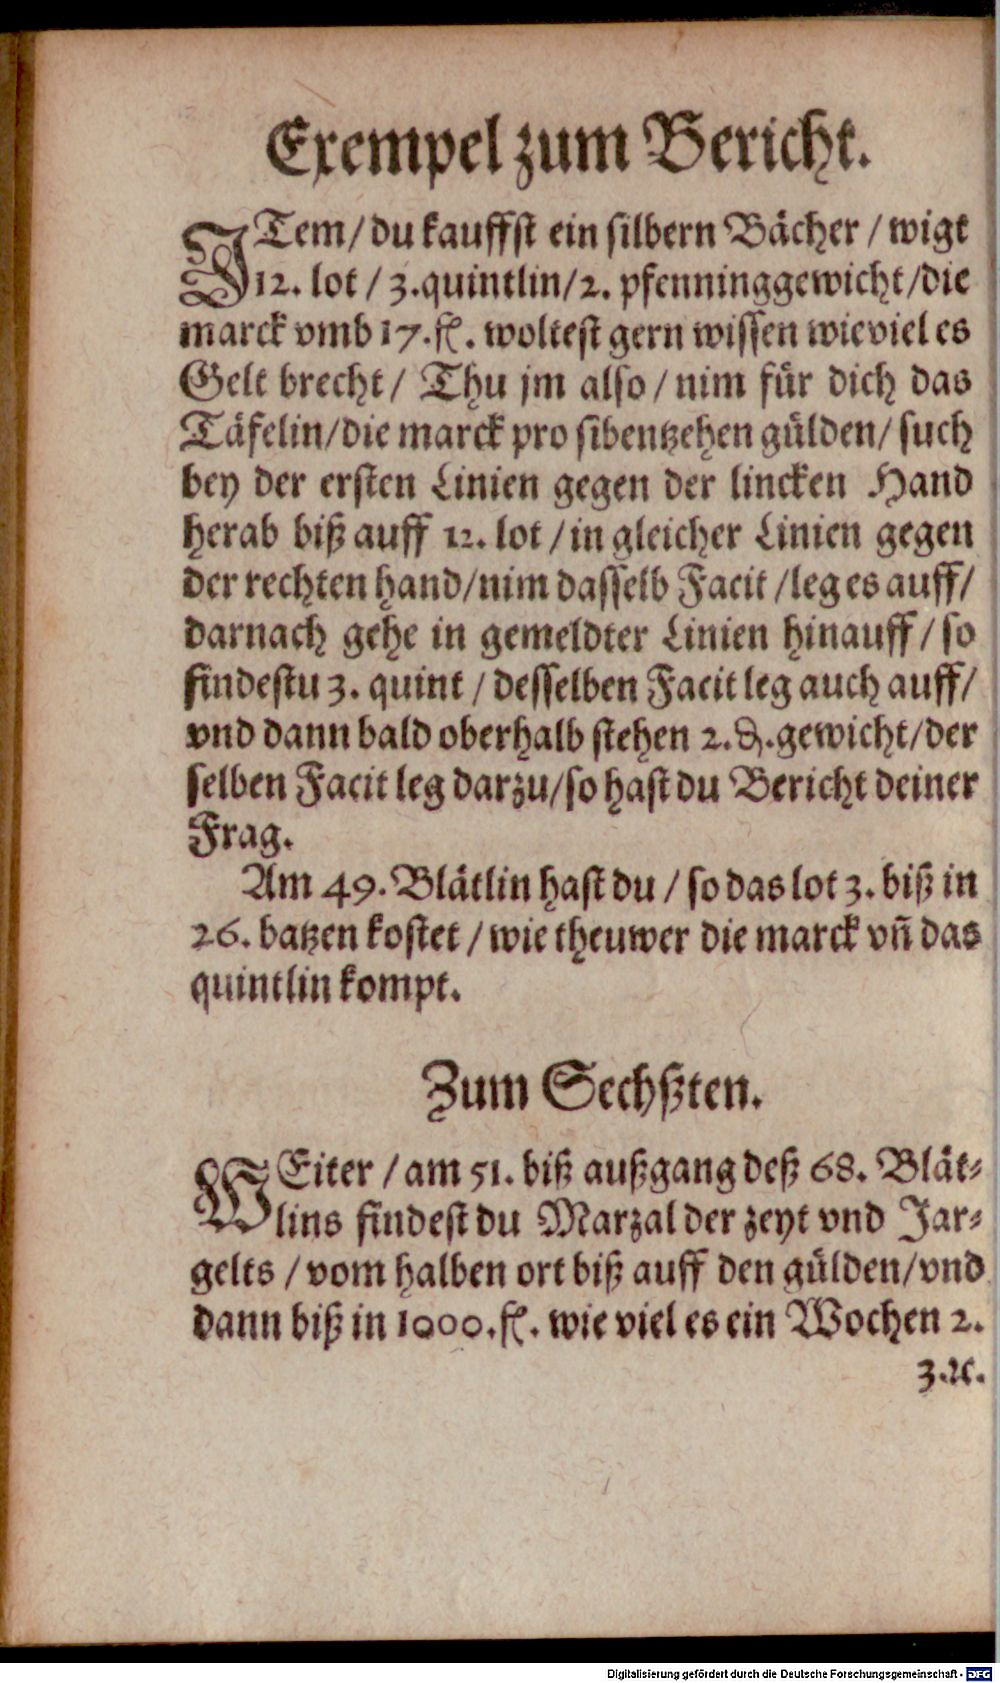 Exempel zum Bericht.
ITem / du kauffst ein silbern Bächer / wigt
12. lot / 3. quintlin / 2. pfenninggewicht / die
marck vmb 17. fl. woltest gern wissen wieviel es
Gelt brecht / Thu jm also / nim für dich das
Täfelin / die marck pro sibentzehen gülden / such
bey der ersten Linien gegen der lincken Hand
herab biß auff 12. lot / in gleicher Linien gegen
der rechten hand / nim dasselb Facit / leg es auff /
darnach gehe in gemeldter Linien hinauff / so
findestu 3. quint / desselben Facit leg auch auff /
vnd dann bald oberhalb stehen 2. ₰. gewicht / der
selben Facit leg darzu / so hast du Bericht deiner
Frag.
Am 49. Blätlin hast du / so das lot 3. biß in
26. batzen kostet / wie theuwer die marck vñ das
quintlin kompt.
Zum Sechßten.
WEiter / am 51. biß außgang deß 68. Blät⸗
lins findest du Marzal der zeyt vnd Jar⸗
gelts / vom halben ort biß auff den gülden / vnd
dann biß in 1000. fl. wie viel es ein Wochen 2.
3. ꝛc.
Digitalisierung gefördert durch die Deutsche Forschungsgemeinschaft - DFG